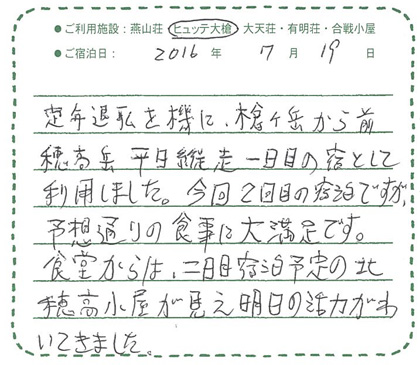 ●ご利用施設：燕山荘 ヒュッテ大槍 大天荘・有明荘・合戦小屋
●ご宿泊日： 2016 年 7 月 19 日
定年退転を機に、槍ヶ岳から前
穂高岳 平日縦走一日目の宿として
利用しました。今回2回目の宿泊ですが、
予想通りの食事に大満足です。
食堂からは、二日目宿泊予定の北
穂高小屋が見え明日の活力がわ
いてきました。